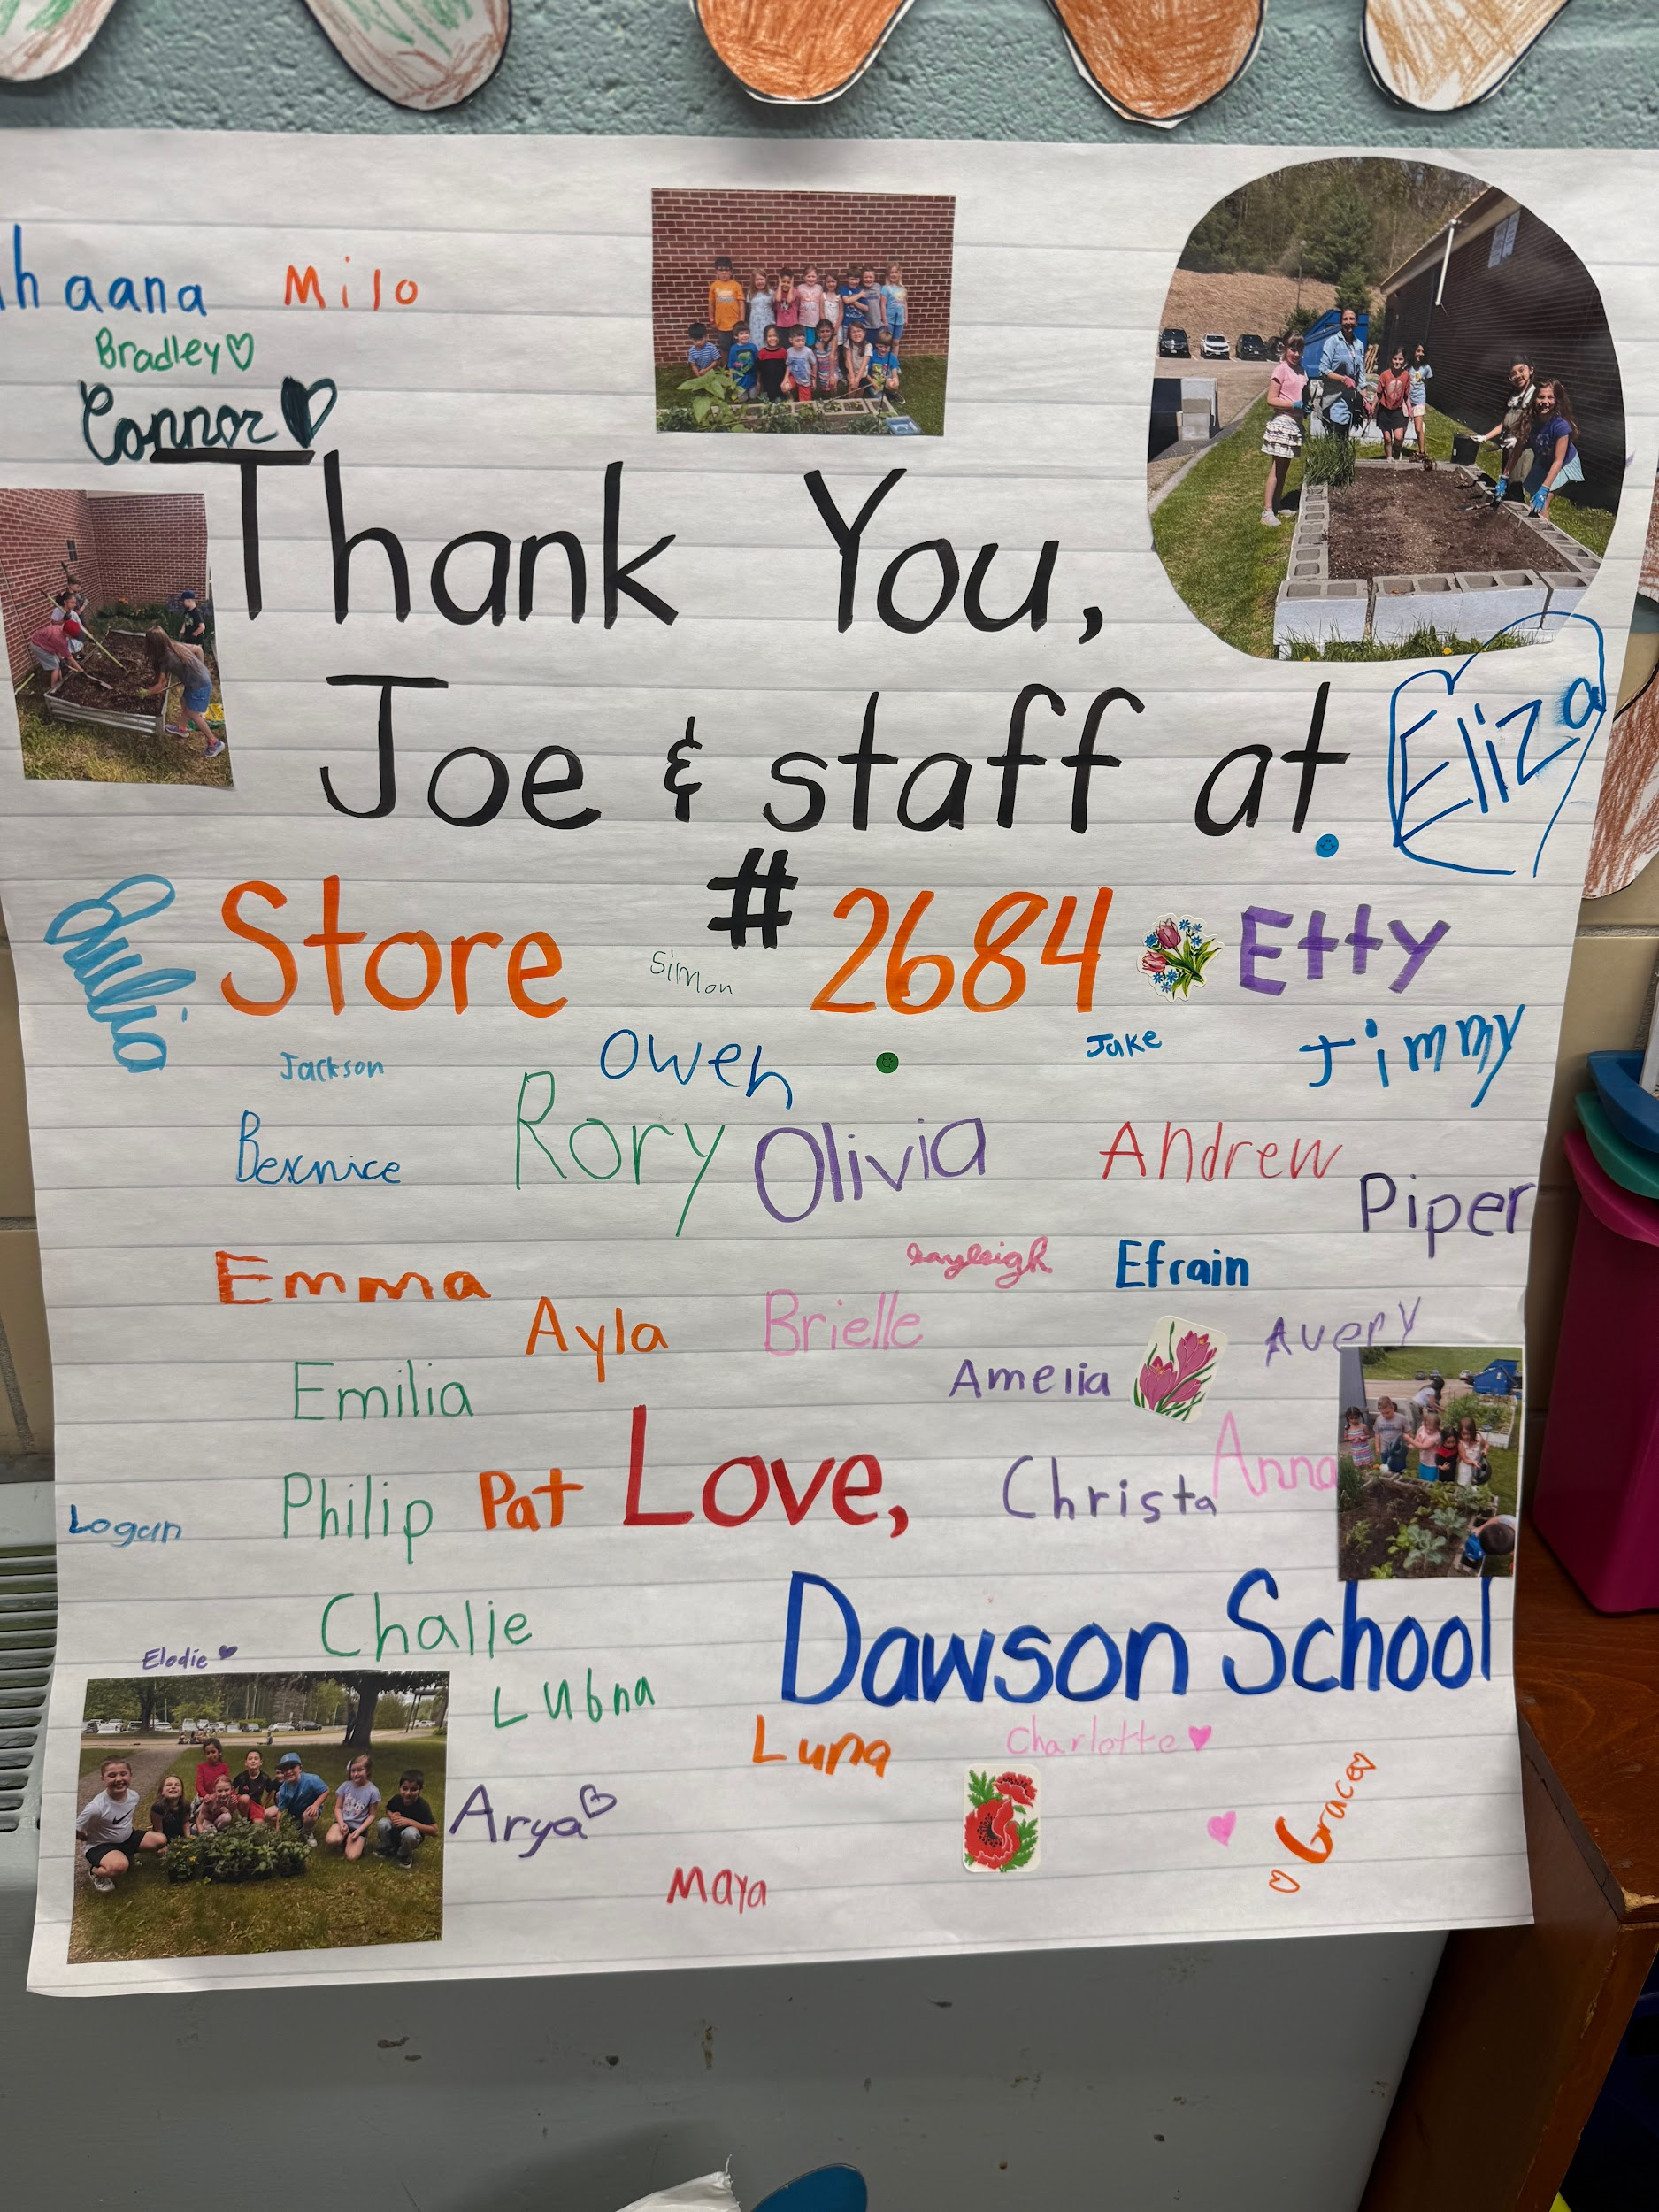 haana Milo
Bradley
Connor
Thank You,
Joe & staff at
Eliza
Julia
Store # 2684 Etty
Simon
Jackson Owen Jake Jimmy
Bernice Rory Olivia Andrew
Piper
Emma Kayleigh Efrain
Ayla Brielle Avery
Emilia Amelia
Logan Philip Pat Love, Christa Anna
Chalie Dawson School
Elodie
Lubna
Luna Charlotte
Arya Grace
Maya